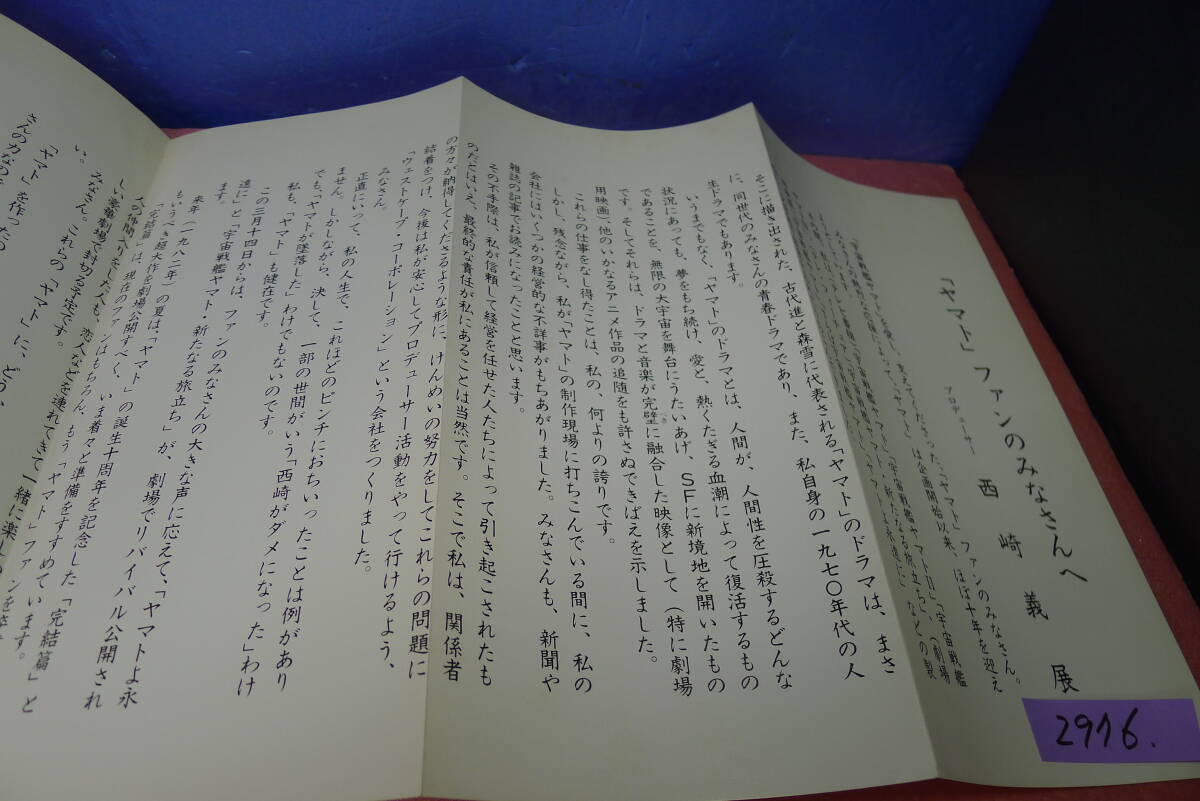 「ヤマト」ファンのみなさんへ
プロデューサー　西崎義展
「ヤマト」ファンのみなさん。
は企画開始以来、ほぼ十年を迎え
「宇宙戦艦ヤマト・新たなる旅立ち」、(劇場
などの製
そこに描き出された、古代進と森雪に代表される「ヤマト」のドラマは、まさ
に、同世代のみなさんの青春ドラマであり、また、私自身の一九七〇年代の人
生ドラマでもあります。
いうまでもなく、「ヤマト」のドラマとは、人間が、人間性を圧殺するどんな
状況にあっても、夢をもち続け、愛と、熱くたぎる血潮によって復活するもの
であることを、無限の大宇宙を舞台にうたいあげ、SFに新境地を開いたもの
です。そしてそれらは、ドラマと音楽が完璧に融合した映像として(特に劇場
用映画)、他のいかなるアニメ作品の追随をも許さぬできばえを示しました。
これらの仕事をなし得たことは、私の、何よりの誇りです。
しかし、残念ながら、私が「ヤマト」の制作現場に打ちこんでいる間に、私の
会社にはいくつかの経営的な不詳事がもちあがりました。みなさんも、新聞や
雑誌の記事でお読みになったことと思います。
その不手際は、私が信頼して経営を任せた人たちによって引き起こされたも
のだとはいえ、最終的な責任が私にあることは当然です。そこで私は、関係者
の方々が納得してくださるような形に、けんめいの努力をしてこれらの問題に
結着をつけ、今後は私が安心してプロデューサー活動をやって行けるよう、
「ウェストケープ・コーポレーション」という会社をつくりました。
みなさん。
正直にいって、私の人生で、これほどのピンチにおちいったことは例があり
ません。しかしながら、決して、一部の世間がいう「西崎がダメになった」わけ
でも、「ヤマトが墜落した」わけでもないのです。
私も、「ヤマト」も健在です。
この三月十四日からは、ファンのみなさんの大きな声に応えて、「ヤマトよ永
遠に」と「宇宙戦艦ヤマト・新たなる旅立ち」が、劇場でリバイバル公開され
ます。
来年(一九八二年)の夏は、「ヤマト」の誕生十周年を記念した「完結篇」と
もいうべき超大作を劇場公開すべく、いま着々と準備をすすめています。
「完結篇」は、現在のファンはもちろん、もう「ヤマト」ファン
の仲間入りをした人も、恋人などを連れてきて一緒に楽し
しい豪華劇場で封切る予定です。
みなさん。これらの「ヤマト」に、どう
い。
「ヤマト」を作ったら
さんの力なの
2916.